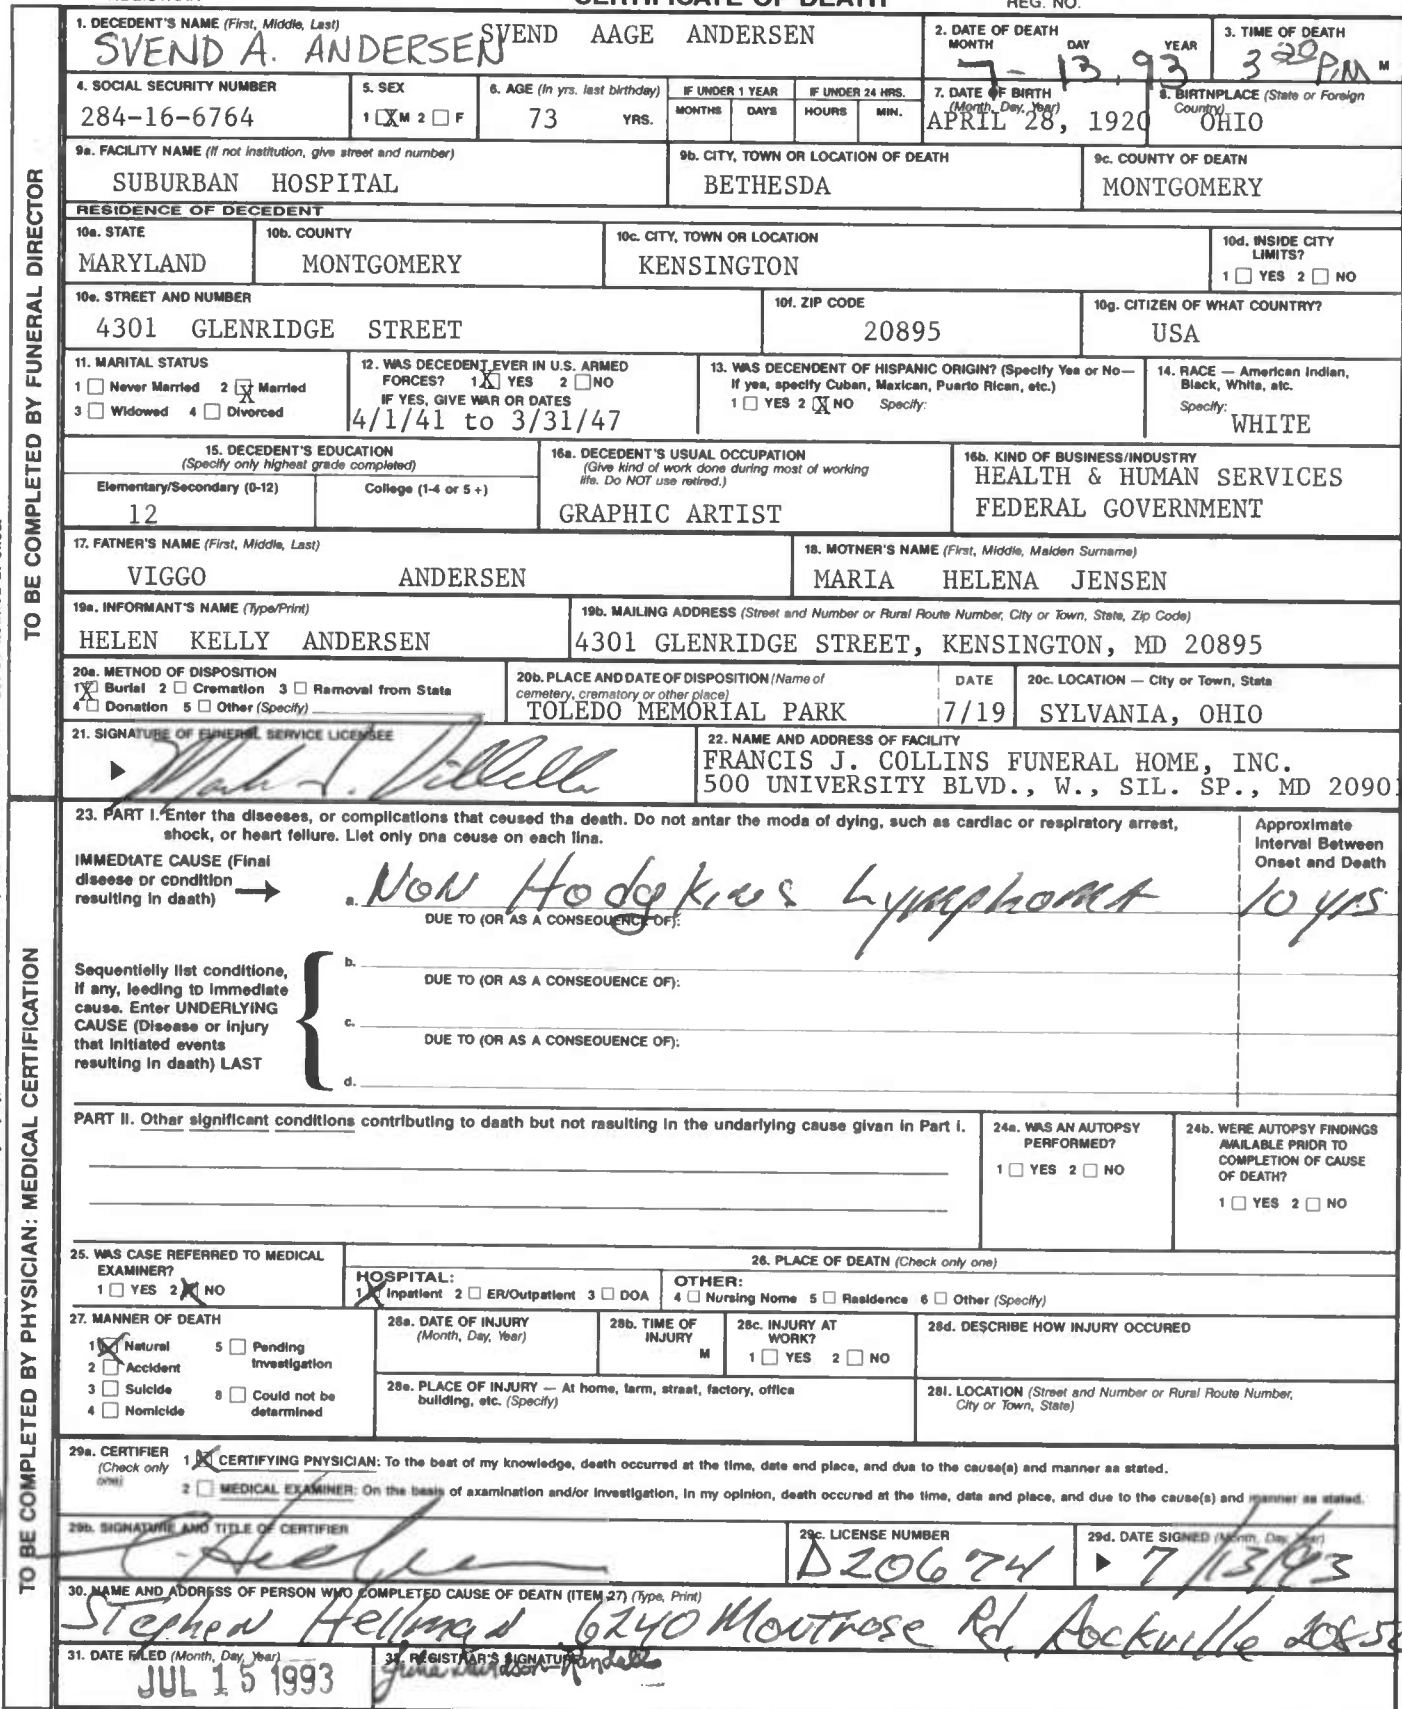 CERTIFICATE OF DEATH
REG. NO.
TO BE COMPLETED BY FUNERAL DIRECTOR
1. DECEDENT'S NAME (First, Middle, Last)
SVEND A. ANDERSEN SVEND AAGE ANDERSEN
2. DATE OF DEATH
MONTH DAY YEAR
7- 13, 93
3. TIME OF DEATH
3 20 P.M M
4. SOCIAL SECURITY NUMBER
284-16-6764
5. SEX
1 X M 2 □ F
6. AGE (In yrs. last birthday)
73 YRS.
IF UNDER 1 YEAR
MONTHS DAYS
IF UNDER 24 HRS.
HOURS MIN.
7. DATE OF BIRTH
(Month, Day, Year)
APRIL 28, 1920
8. BIRTNPLACE (State or Foreign
Country)
OHIO
9a. FACILITY NAME (If not institution, give street and number)
SUBURBAN HOSPITAL
9b. CITY, TOWN OR LOCATION OF DEATH
BETHESDA
9c. COUNTY OF DEATH
MONTGOMERY
RESIDENCE OF DECEDENT
10a. STATE
MARYLAND
10b. COUNTY
MONTGOMERY
10c. CITY, TOWN OR LOCATION
KENSINGTON
10d. INSIDE CITY
LIMITS?
1 □ YES 2 □ NO
10e. STREET AND NUMBER
4301 GLENRIDGE STREET
10f. ZIP CODE
20895
10g. CITIZEN OF WHAT COUNTRY?
USA
11. MARITAL STATUS
1 □ Never Married 2 X Married
3 □ Widowed 4 □ Divorced
12. WAS DECEDENT EVER IN U.S. ARMED
FORCES? 1 X YES 2 □ NO
IF YES, GIVE WAR OR DATES
4/1/41 to 3/31/47
13. WAS DECENDENT OF HISPANIC ORIGIN? (Specify Yes or No—
If yes, specify Cuban, Maxican, Puarto Rican, etc.)
1 □ YES 2 X NO Specify:
14. RACE — American Indian,
Black, Whita, atc.
Specify:
WHITE
15. DECEDENT'S EDUCATION
(Specify only highest grade completed)
Elementary/Secondary (0-12) College (1-4 or 5 +)
12
16a. DECEDENT'S USUAL OCCUPATION
(Give kind of work done during most of working
life. Do NOT use retired.)
GRAPHIC ARTIST
16b. KIND OF BUSINESS/INDUSTRY
HEALTH & HUMAN SERVICES
FEDERAL GOVERNMENT
17. FATNER'S NAME (First, Middle, Last)
VIGGO ANDERSEN
18. MOTNER'S NAME (First, Middle, Malden Surname)
MARIA HELENA JENSEN
19a. INFORMANT'S NAME (Type/Print)
HELEN KELLY ANDERSEN
19b. MAILING ADDRESS (Street and Number or Rural Route Number, City or Town, State, Zip Code)
4301 GLENRIDGE STREET, KENSINGTON, MD 20895
20a. METNOD OF DISPOSITION
1 X Burlal 2 □ Cremation 3 □ Ramoval from Stata
4 □ Donation 5 □ Other (Specify)
20b. PLACE AND DATE OF DISPOSITION (Name of
cemetery, crematory or other place)
TOLEDO MEMORIAL PARK
DATE
7/19
20c. LOCATION — City or Town, Stata
SYLVANIA, OHIO
21. SIGNATURE OF FUNERAL SERVICE LICENSEE
22. NAME AND ADDRESS OF FACILITY
FRANCIS J. COLLINS FUNERAL HOME, INC.
500 UNIVERSITY BLVD., W., SIL. SP., MD 20901
TO BE COMPLETED BY PHYSICIAN: MEDICAL CERTIFICATION
23. PART I. Enter tha diseeses, or complications that ceused tha death. Do not antar the moda of dying, such as cardlac or respiratory arrest,
shock, or heart fellure. Llet only ona ceuse on each lina.
Approximate
Interval Between
Onset and Death
IMMEDIATE CAUSE (Final
diseese or condition
resulting in daath)
a. NON Hodgkins Lymphoma 10 yrs
DUE TO (OR AS A CONSEQUENCE OF):
Sequentielly list conditione,
if any, leeding to immediate
cause. Enter UNDERLYING
CAUSE (Disease or injury
that initiated events
resulting in daath) LAST
b.
DUE TO (OR AS A CONSEOUENCE OF):
c.
DUE TO (OR AS A CONSEOUENCE OF):
d.
PART II. Othar significant conditions contributing to daath but not rasulting in the undarlying cause givan in Part I.
24a. WAS AN AUTOPSY
PERFORMED?
1 □ YES 2 □ NO
24b. WERE AUTOPSY FINDINGS
AVAILABLE PRIOR TO
COMPLETION OF CAUSE
OF DEATH?
1 □ YES 2 □ NO
25. WAS CASE REFERRED TO MEDICAL
EXAMINER?
1 □ YES 2 X NO
26. PLACE OF DEATH (Check only one)
HOSPITAL:
1 X Inpatlent 2 □ ER/Outpatlent 3 □ DOA
OTHER:
4 □ Nursing Nome 5 □ Rasldence 6 □ Other (Specify)
27. MANNER OF DEATH
1 X Natural 5 □ Pending
Investigation
2 □ Accident
3 □ Suicide 8 □ Could not be
determined
4 □ Nomicide
28a. DATE OF INJURY
(Month, Day, Year)
28b. TIME OF
INJURY
M
28c. INJURY AT
WORK?
1 □ YES 2 □ NO
28d. DESCRIBE HOW INJURY OCCURED
28e. PLACE OF INJURY — At home, tarm, straat, factory, offica
building, etc. (Specify)
28l. LOCATION (Street and Number or Rural Route Number,
City or Town, State)
29a. CERTIFIER
(Check only
one)
1 X CERTIFYING PNYSICIAN: To the beat of my knowledge, death occurred at the tlme, date end place, and due to the cause(a) and manner aa stated.
2 □ MEDICAL EXAMINER: On the basis of axamination and/or Investigation, In my opinion, death occured at the time, data and place, and due to the cause(s) and manner as stated.
29b. SIGNATURE AND TITLE OF CERTIFIER
29c. LICENSE NUMBER
D20674
29d. DATE SIGNED (Month, Day, Year)
7/13/93
30. NAME AND ADDRESS OF PERSON WNO COMPLETED CAUSE OF DEATN (ITEM 27) (Type, Print)
Stephen Hellman 6240 Montrose Rd, Rockville 2085
31. DATE FILED (Month, Day, Year)
JUL 15 1993
32. REGISTRAR'S SIGNATURE